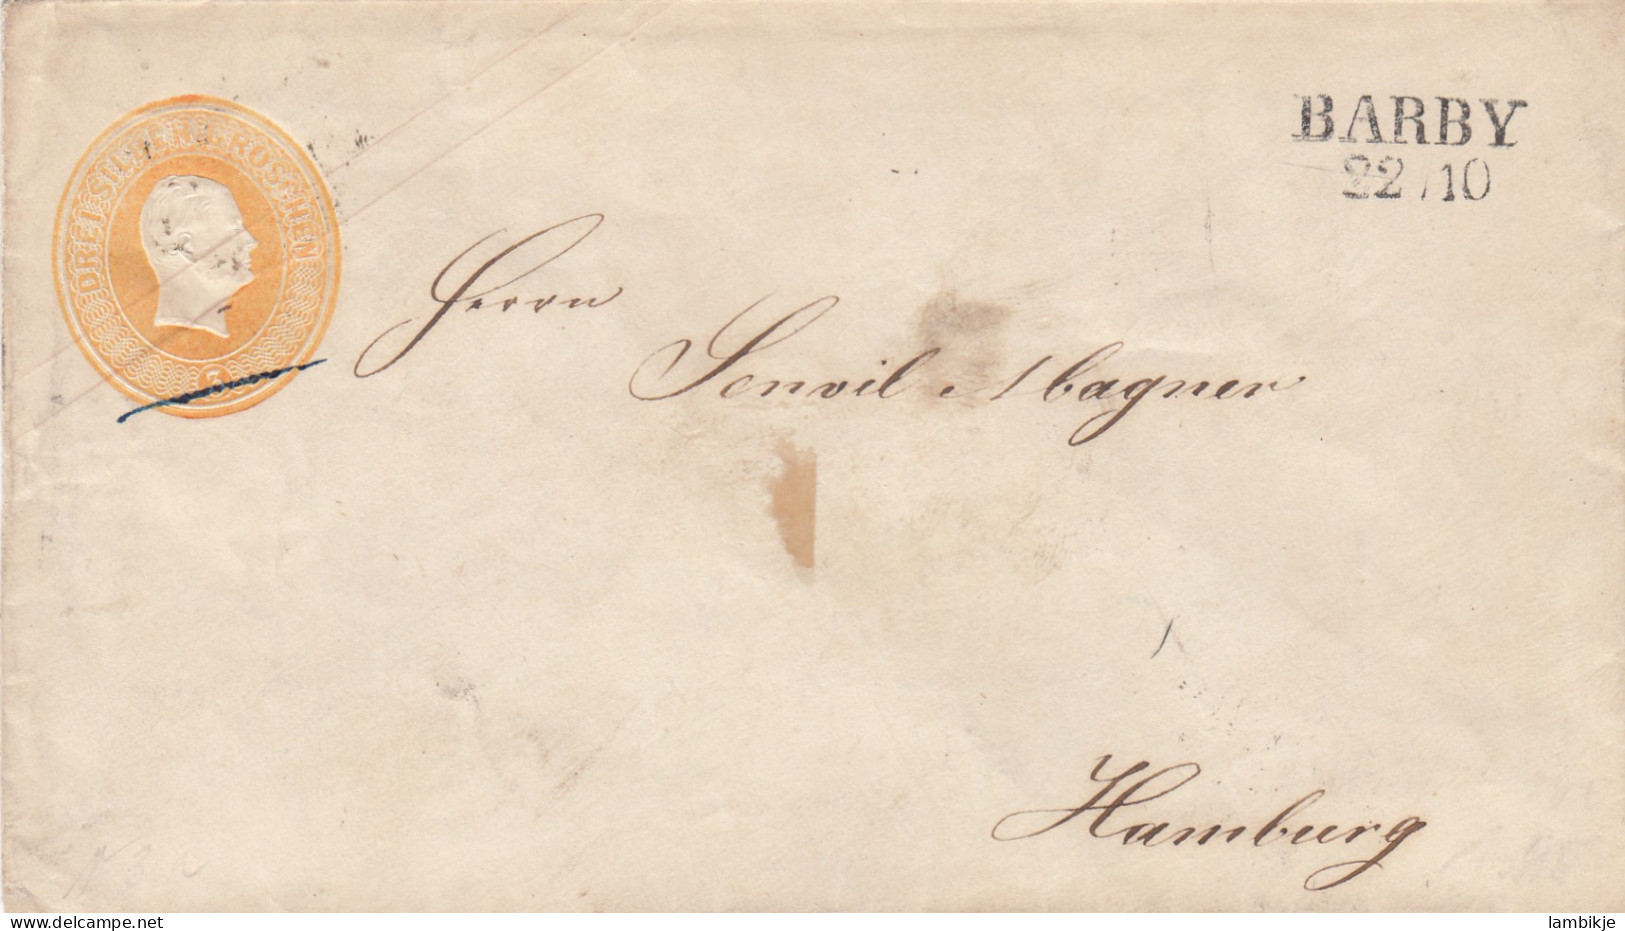 DREI SILBERGROSCHEN
3
BARBY
22/10
Herrn
Hamburg
www.delcampe.net
lambikje